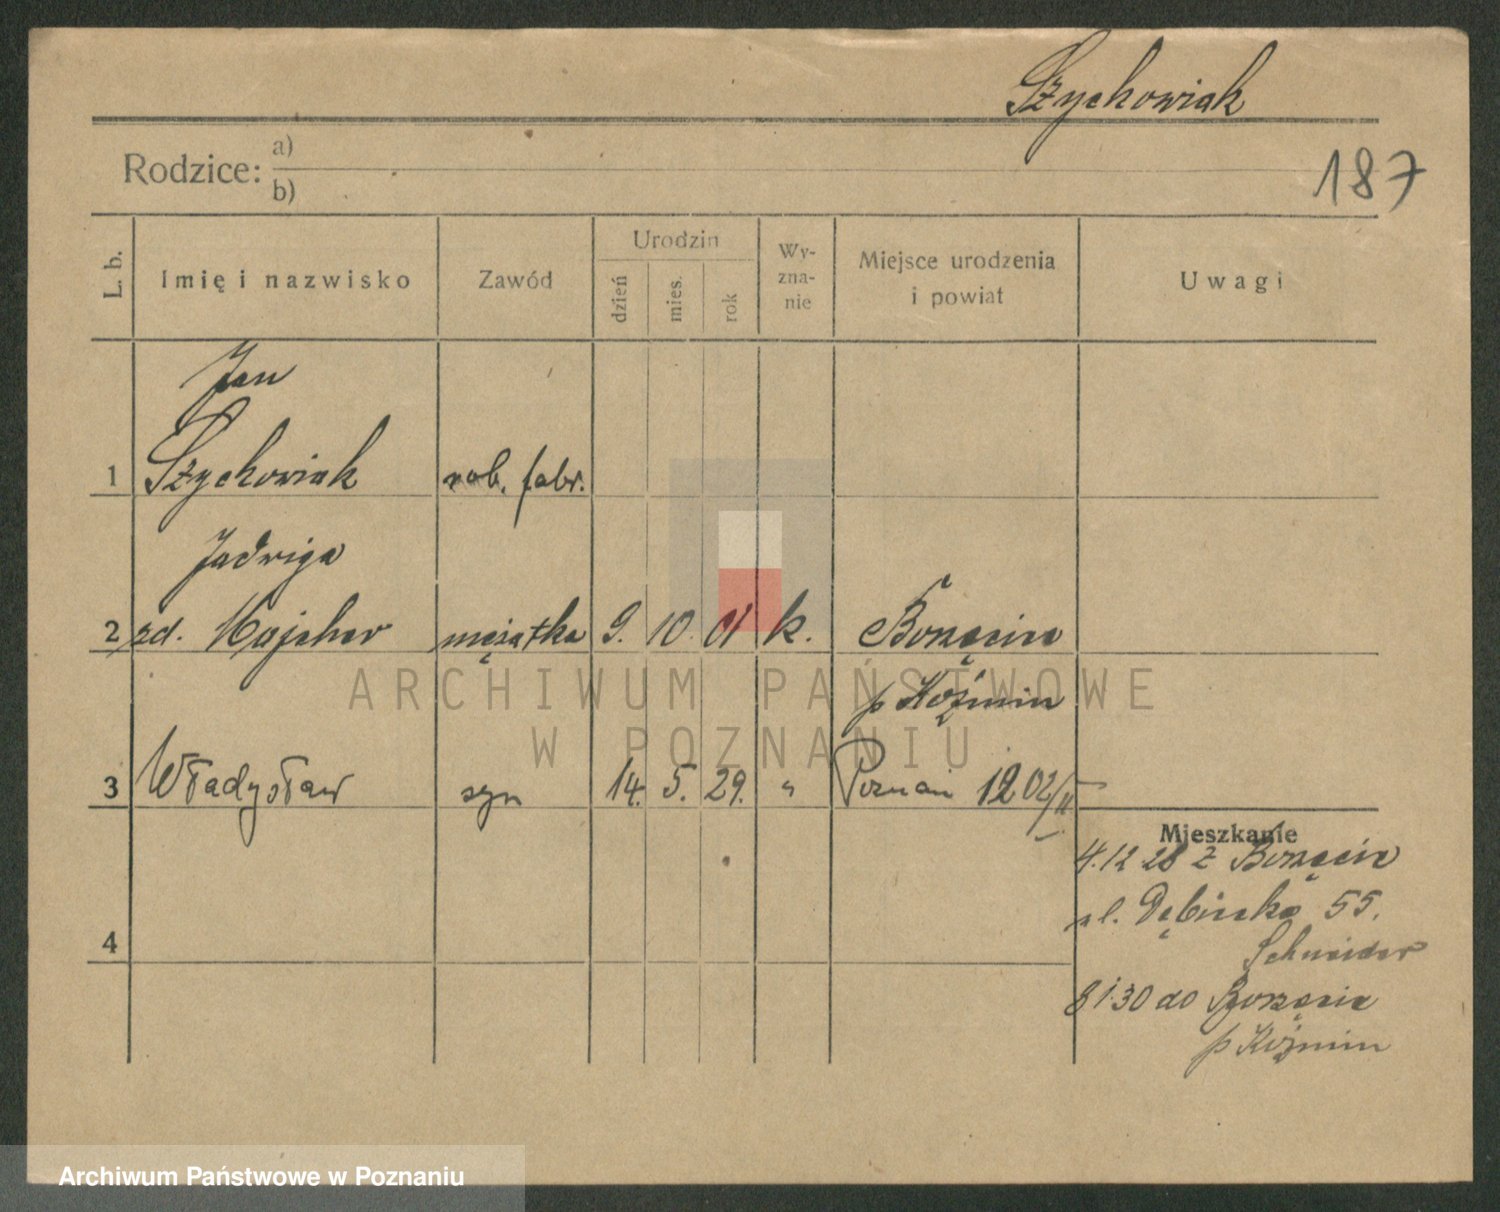 Szychowiak
Rodzice: a)
b)
187
L. b.
Imię i nazwisko
Zawód
Urodzin
dzień
mies.
rok
Wy-
zna-
nie
Miejsce urodzenia
i powiat
Uwagi
Jan
1 Szychowiak rob. fabr.
Jadwiga
2 zd. Majcher mężatka 9. 10. 01 k. Borzęcice
p Koźmin
3 Władysław syn 14. 5. 29. " Poznań 1202/II
Mieszkanie
4.12 28 z Borzęcic
ul. Dębińska 55.
4
Schneider
8 1 30 do Borzęcic
p Koźmin
ARCHIWUM PAŃSTWOWE
W POZNANIU
Archiwum Państwowe w Poznaniu